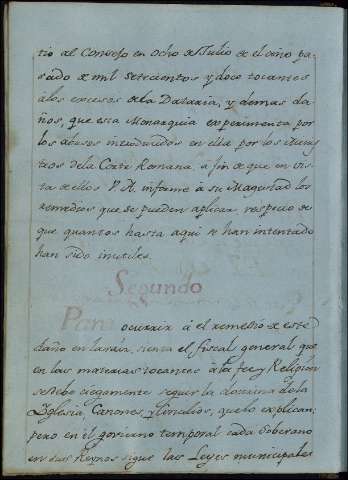 tió al Consejo en ocho de Julio de el año pa-
sado de mil setecientos y doce tocantes
á los excesos de la Dataria, y demas da-
ños, que esta Monarquia experimenta por
los abusos introducidos en ella por los
tros de la Corte Romana, a fin de que en vis-
ta de ellos V. A. informe á su Magestad los
remedios que se pueden aplicar respecto de
que quantos hasta aqui se han intentado
han sido inutiles.
Segundo
Para ocurrir á el remedio de este
daño en la raiz, sienta el fiscal general que
en las materias tocantes á la fee y Religion
se debe ciegamente seguir la doctrina de la
Yglesia, Canones y Concilios, que lo explican;
pero en el govierno temporal cada Soberano
en sus Reynos sigue las Leyes municipales